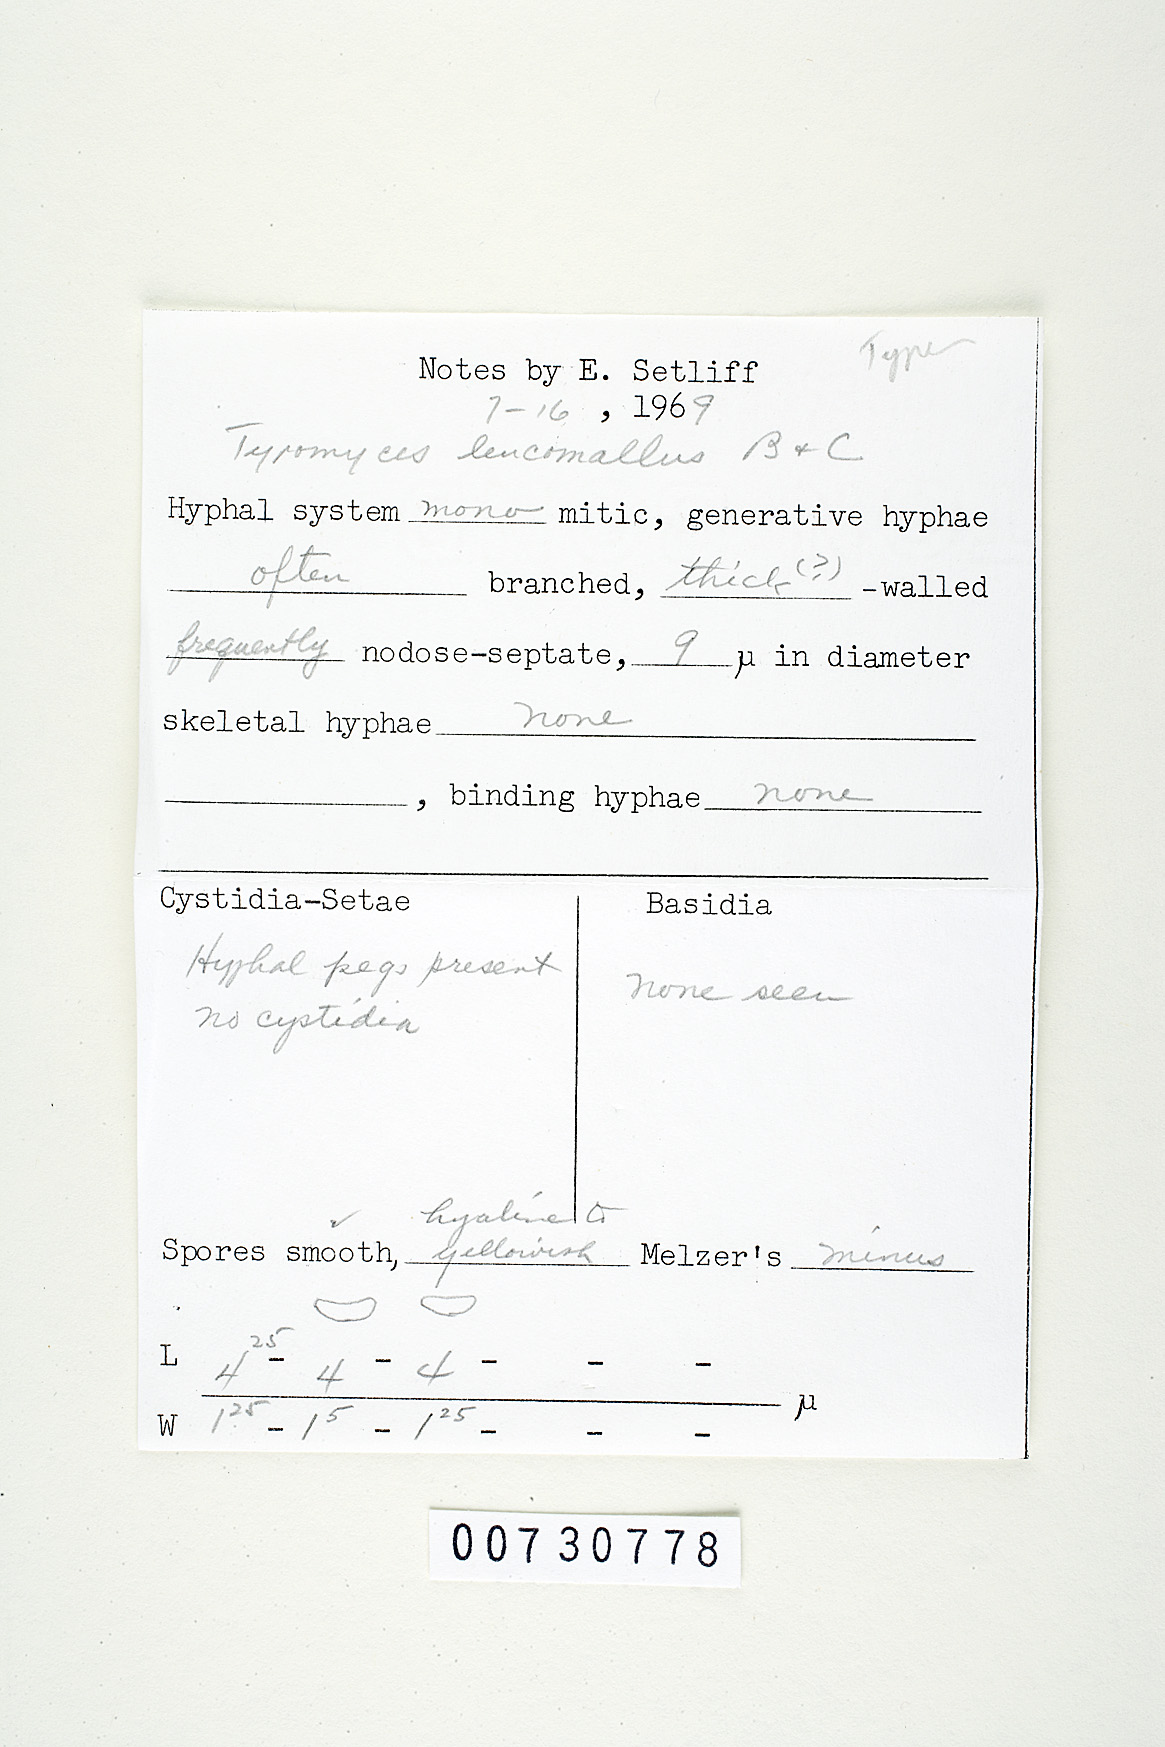 Type
Notes by E. Setliff
7-16 , 1969
Tyromyces leucomallus B & C
Hyphal system mono mitic, generative hyphae
often branched, thick(?) -walled
frequently nodose-septate, 9 µ in diameter
skeletal hyphae none
, binding hyphae none
Cystidia-Setae
Hyphal pegs present
no cystidia
Basidia
none seen
✓ hyaline to
Spores smooth, yellowish Melzer's minus
L 4²⁵ - 4 - 4 - - -
µ
W 1²⁵ - 1⁵ - 1²⁵ - - -
00730778